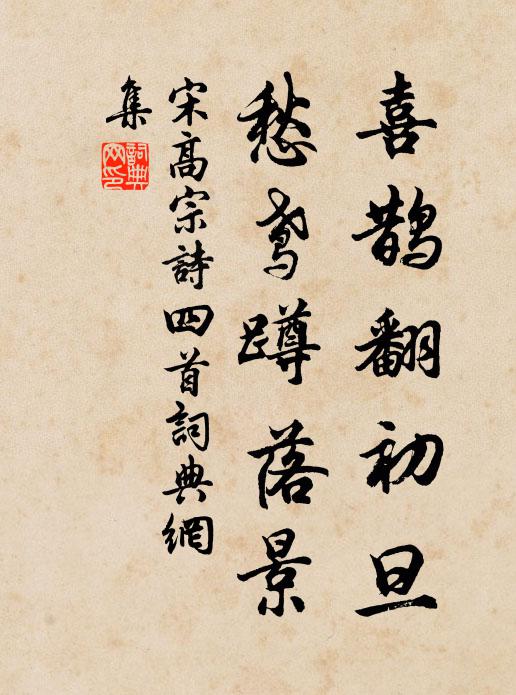 喜鵲翻初旦
愁鳶蹲落景
宋高宗詩四首詞典網
集
詞典網印